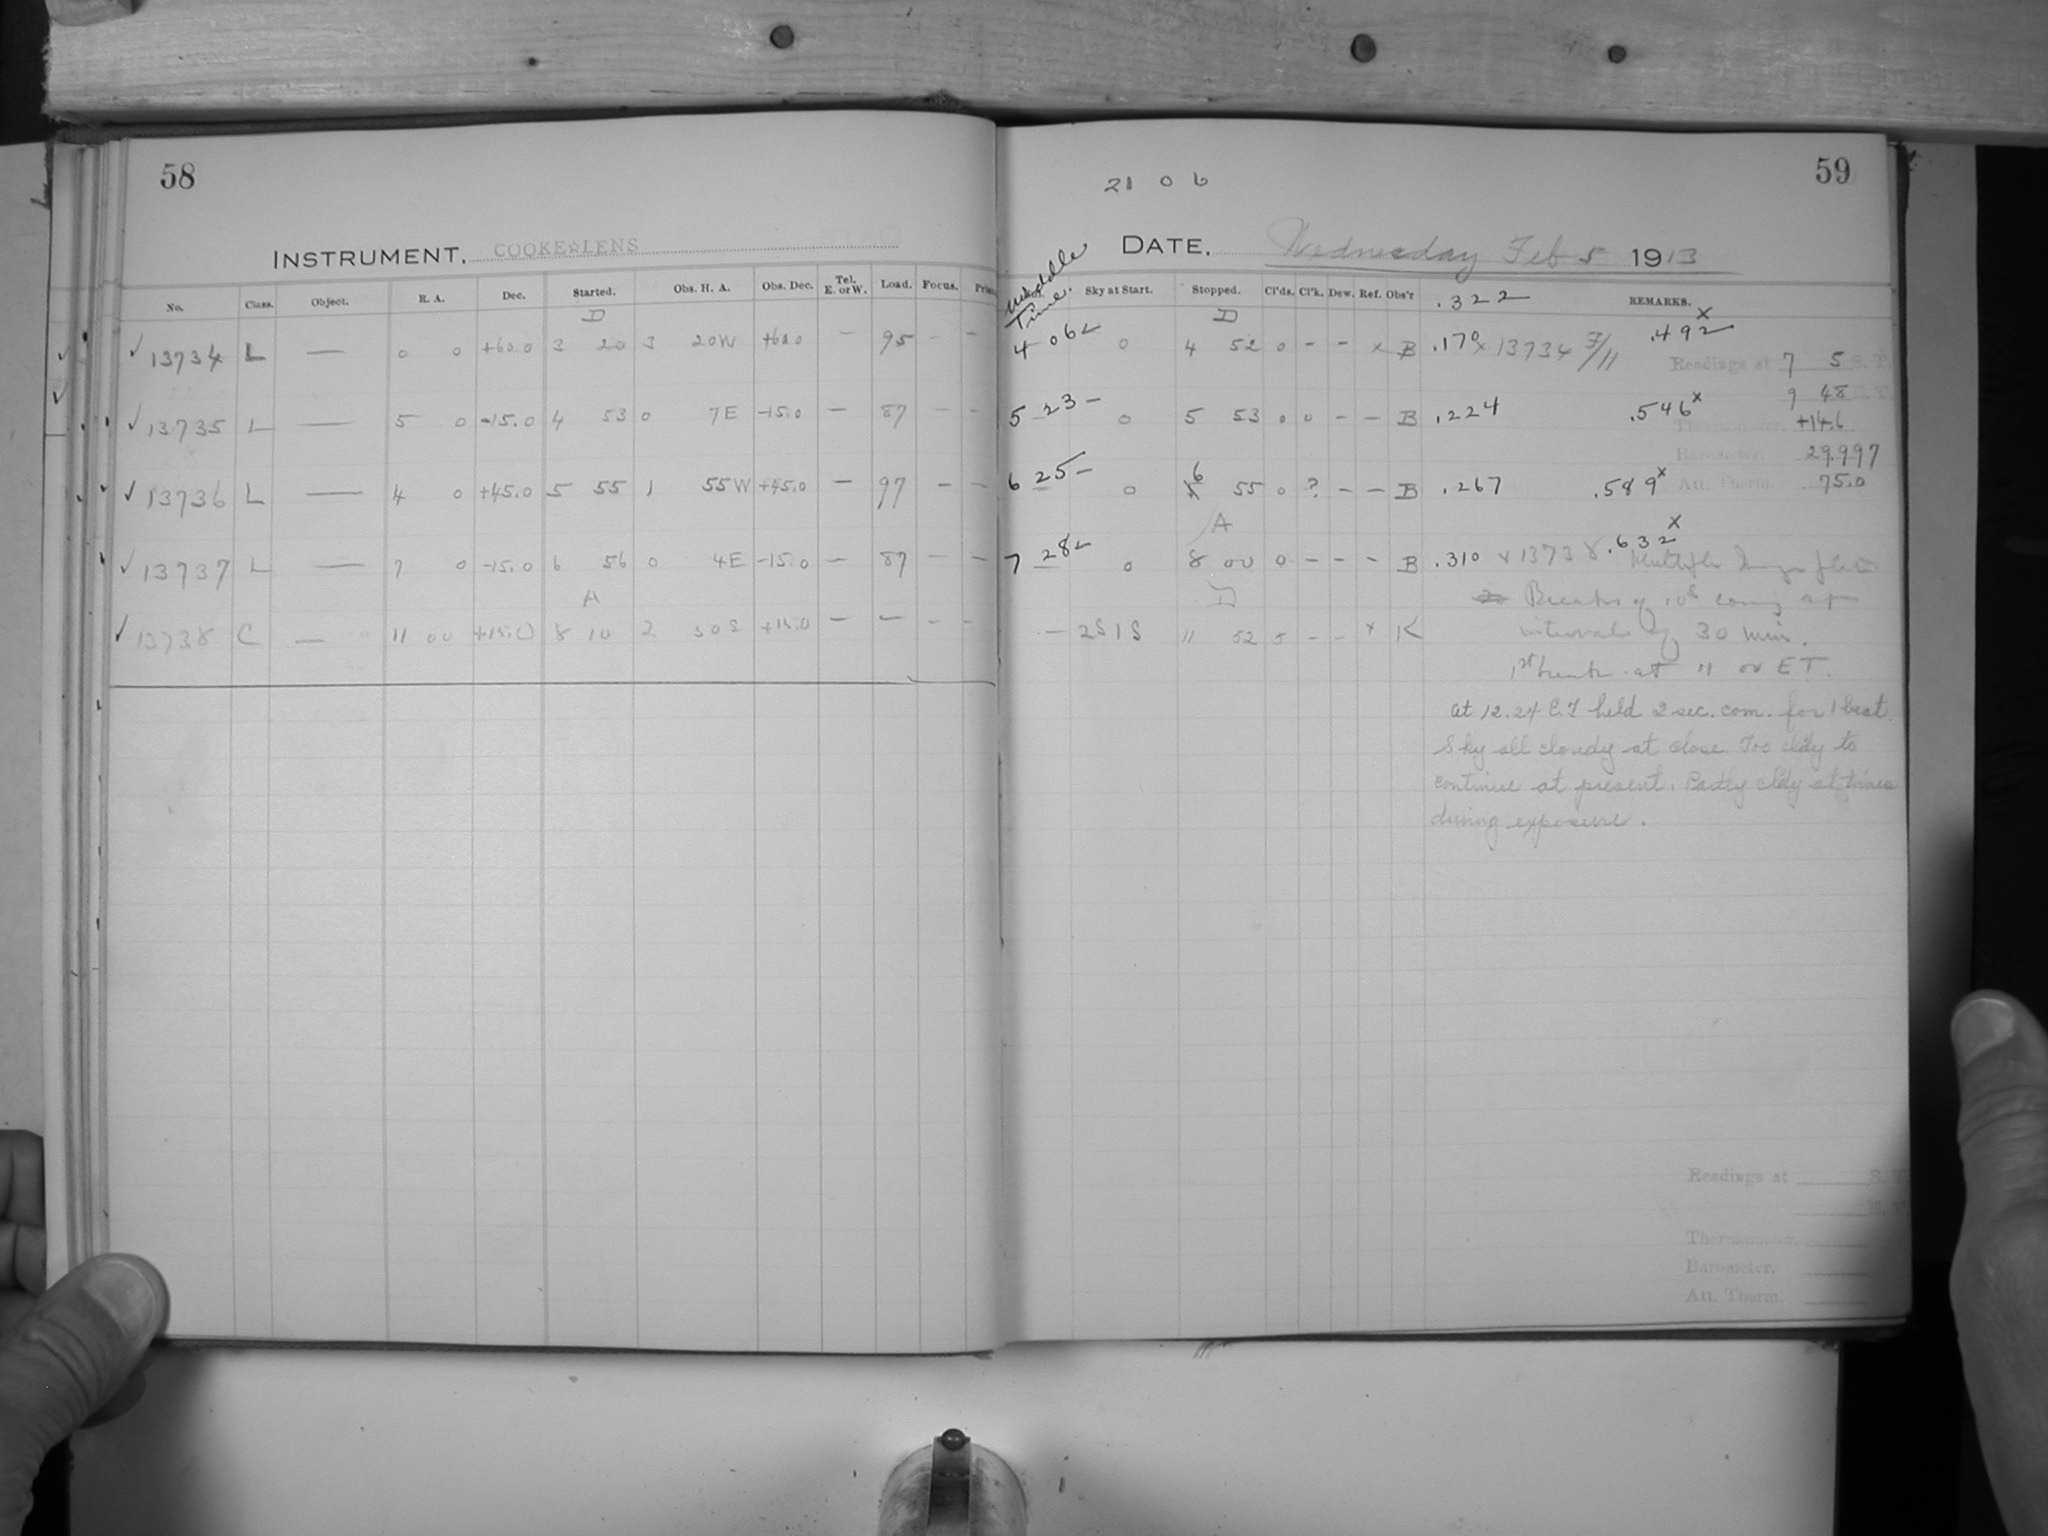 58
INSTRUMENT. COOKE☆LENS
No. Class. Object. R. A. Dec. Started. Obs. H. A. Obs. Dec. Tel. E. or W. Load. Focus.
D
✓ 13734 L — 0 0 +60.0 3 20 3 20W +60.0 — 95 - -
✓ 13735 L — 5 0 -15.0 4 53 0 7E -15.0 — 87 - -
✓ 13736 L — 4 0 +45.0 5 55 1 55W +45.0 — 97 - -
✓ 13737 L — 7 0 -15.0 6 56 0 4E -15.0 — 87 - -
A
✓ 13738 C — 11 00 +15.0 8 10 2 50E +15.0 — — - -
59
21 0 6
DATE. Wednesday Feb 5 1913
Middle Time.
Sky at Start. Stopped. Cl'ds. Cl'k. Dew. Ref. Obs'r .322 REMARKS.
D
4 06 0 4 52 0 - - x B .170 x 13734 3/11 .492 x
Readings at 7 5 S. T.
9 48 E. T.
5 23 - 0 5 53 0 0 - - B .224 .546 x
Thermometer. +14.6
Barometer. 29.997
6 25 - 0 6 55 0 ? - - B .267 .589 x
Att. Therm. 75.0
A
7 28 0 8 00 0 - - - B .310 x 13738 .632 x
Multiple Image plate
D
Breaks of 10s comg at
— 2S1S 11 52 5 - - x K
intervals of 30 min.
1st break at 11 00 E T.
at 12.24 E.T held 2 sec. com. for 1 beat.
Sky all cloudy at close. Too cldy to
continue at present. Partly cldy at times
during exposure.
Readings at S. T
E. T
Thermometer.
Barometer.
Att. Therm.